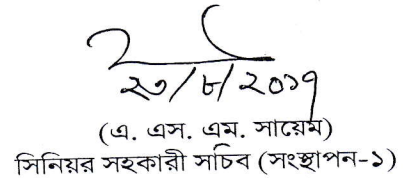 ২৩/৮/২০১৭
(এ. এস. এম. সায়েম)
সিনিয়র সহকারী সচিব (সংস্থাপন-১)